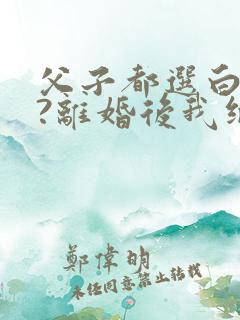 父子都選白
?離婚後我
鄭偉明
未任同意禁止轉載